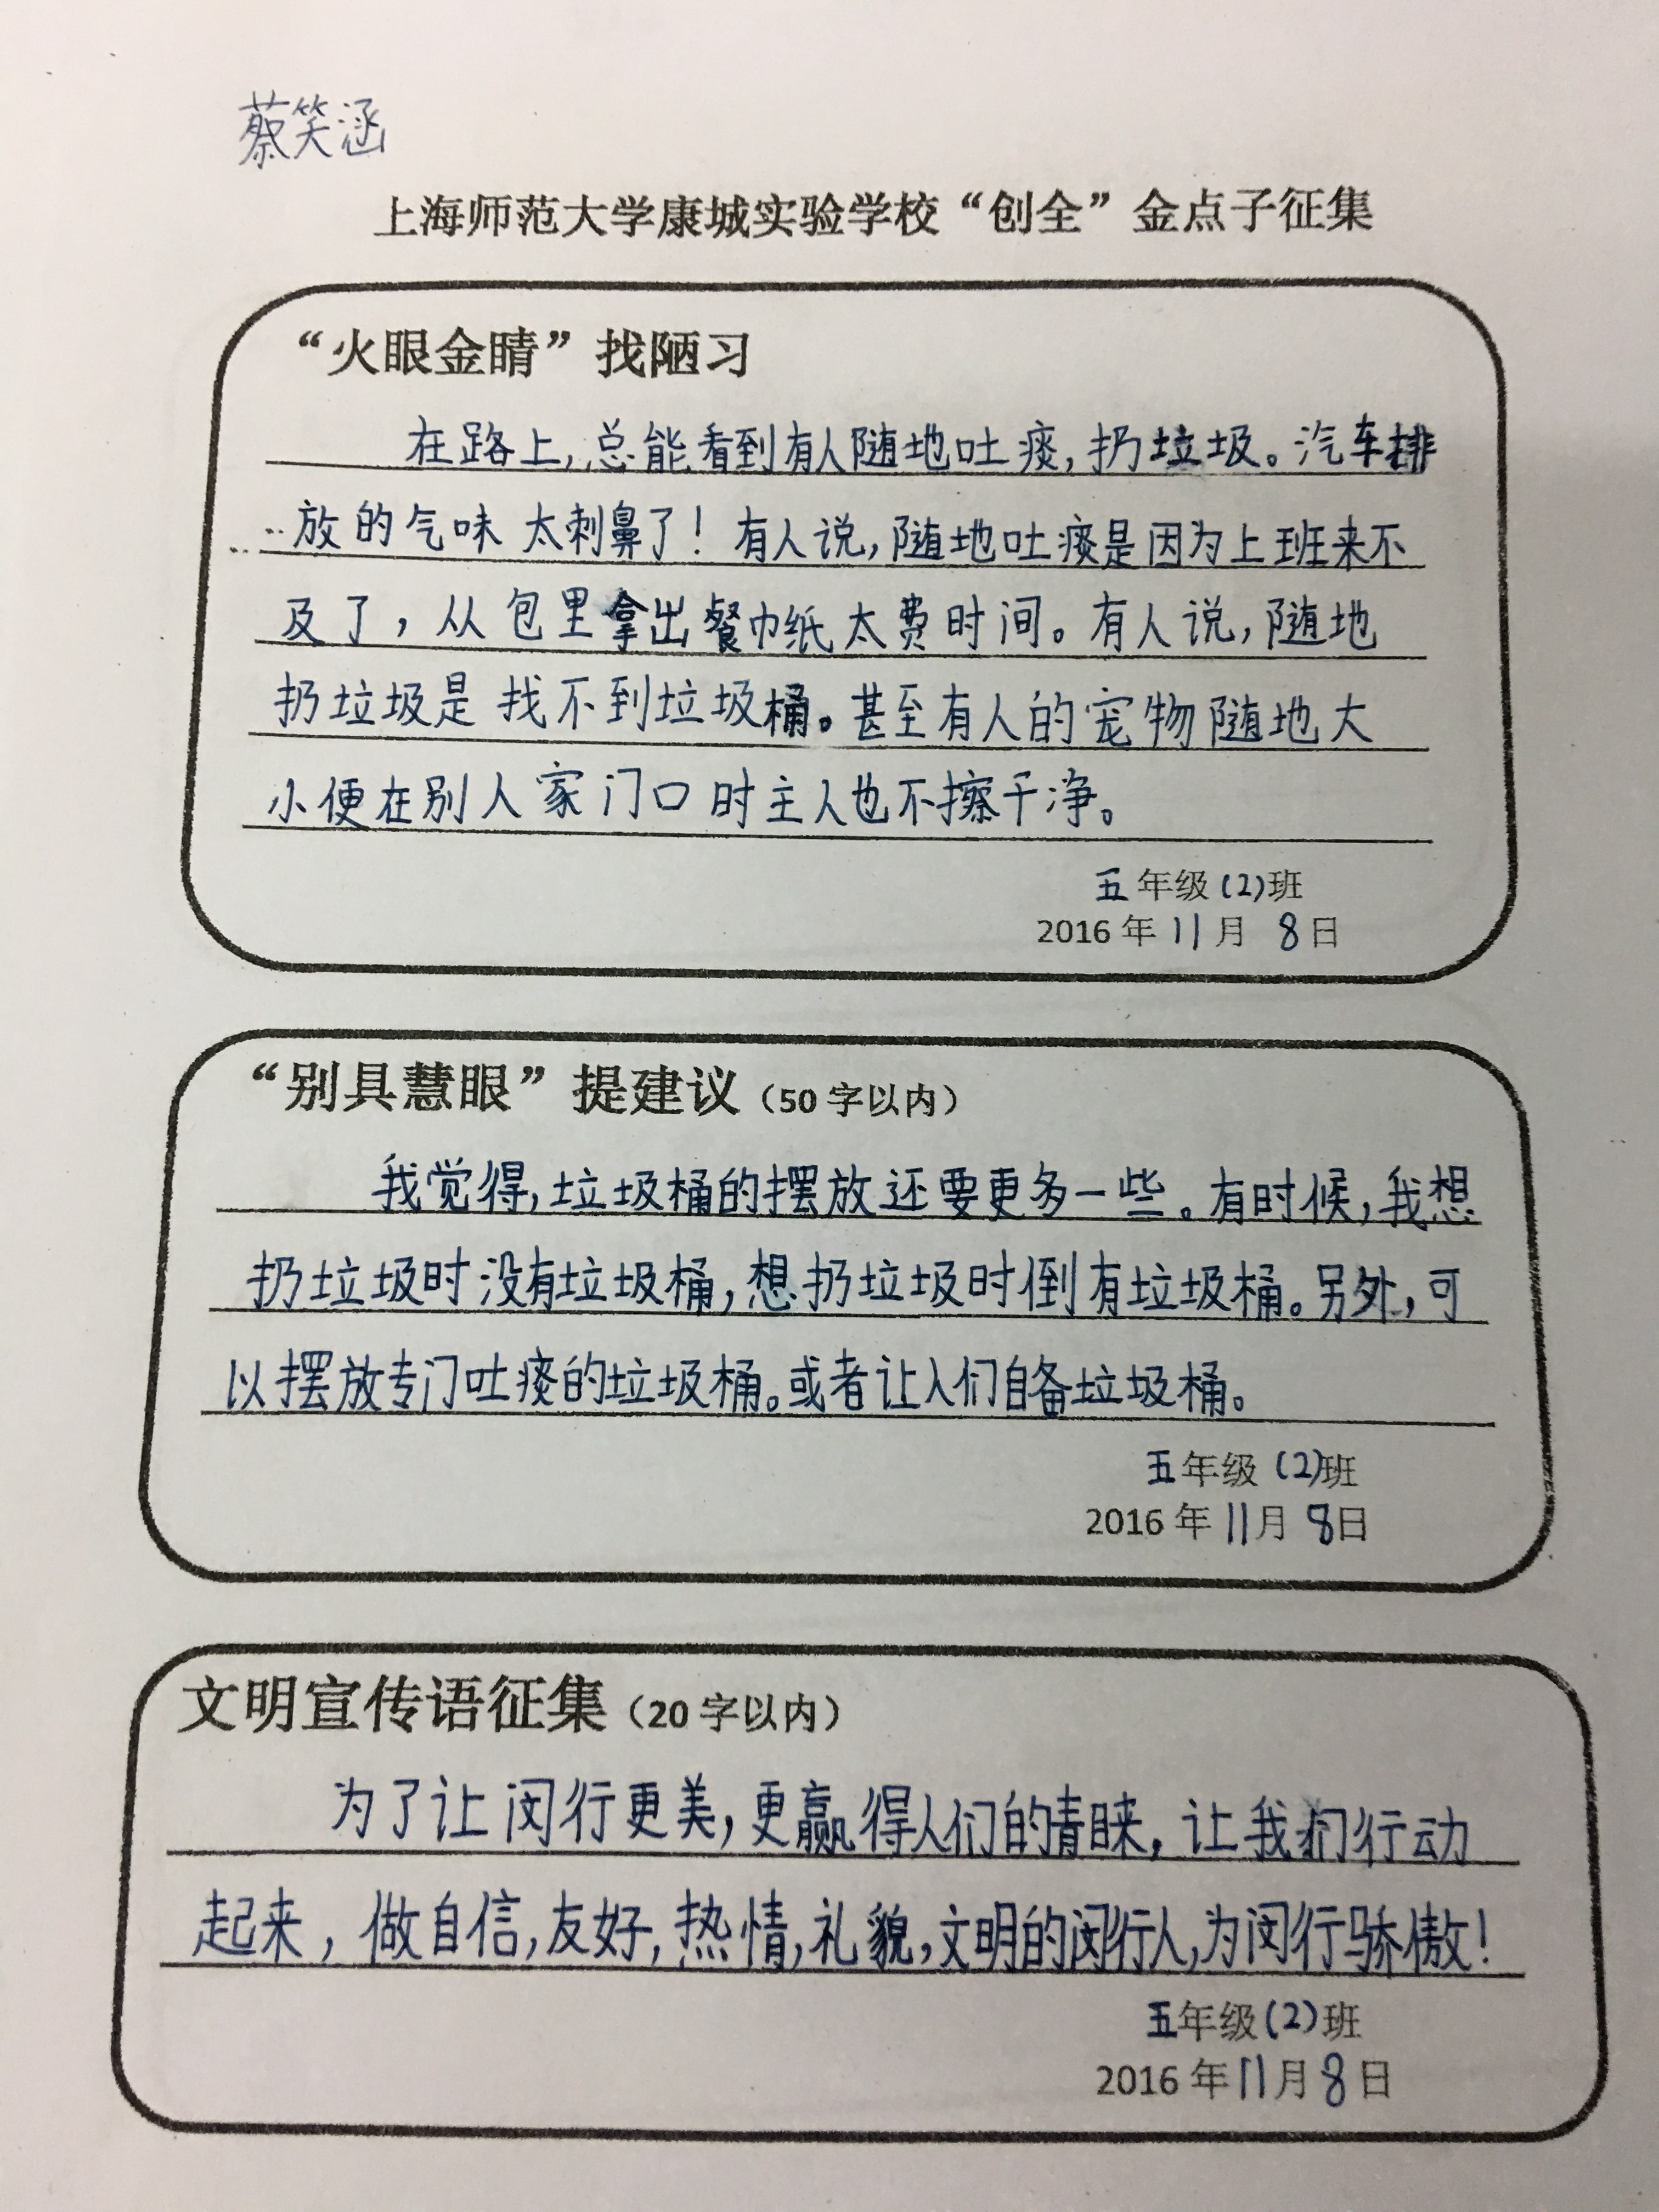 蔡笑涵
上海师范大学康城实验学校“创全”金点子征集
“火眼金睛”找陋习
在路上,总能看到有人随地吐痰,扔垃圾。汽车排
放的气味太刺鼻了!有人说,随地吐痰是因为上班来不
及了,从包里拿出餐巾纸太费时间。有人说,随地
扔垃圾是找不到垃圾桶。甚至有人的宠物随地大
小便在别人家门口时主人也不擦干净。
五年级(2)班
2016年11月8日
“别具慧眼”提建议(50字以内)
我觉得,垃圾桶的摆放还要更多一些。有时候,我想
扔垃圾时没有垃圾桶,想扔垃圾时倒有垃圾桶。另外,可
以摆放专门吐痰的垃圾桶。或者让人们自备垃圾桶。
五年级(2)班
2016年11月8日
文明宣传语征集(20字以内)
为了让闵行更美,更赢得人们的青睐,让我们行动
起来,做自信,友好,热情,礼貌,文明的闵行人,为闵行骄傲!
五年级(2)班
2016年11月8日